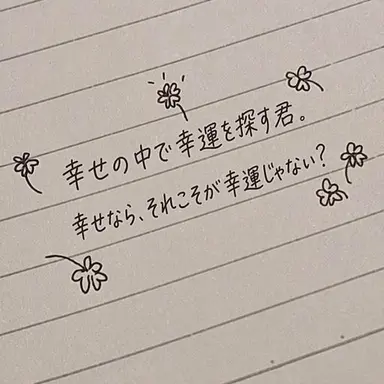 幸せの中で幸運を探す君。
幸せなら、それこそが幸運じゃない？